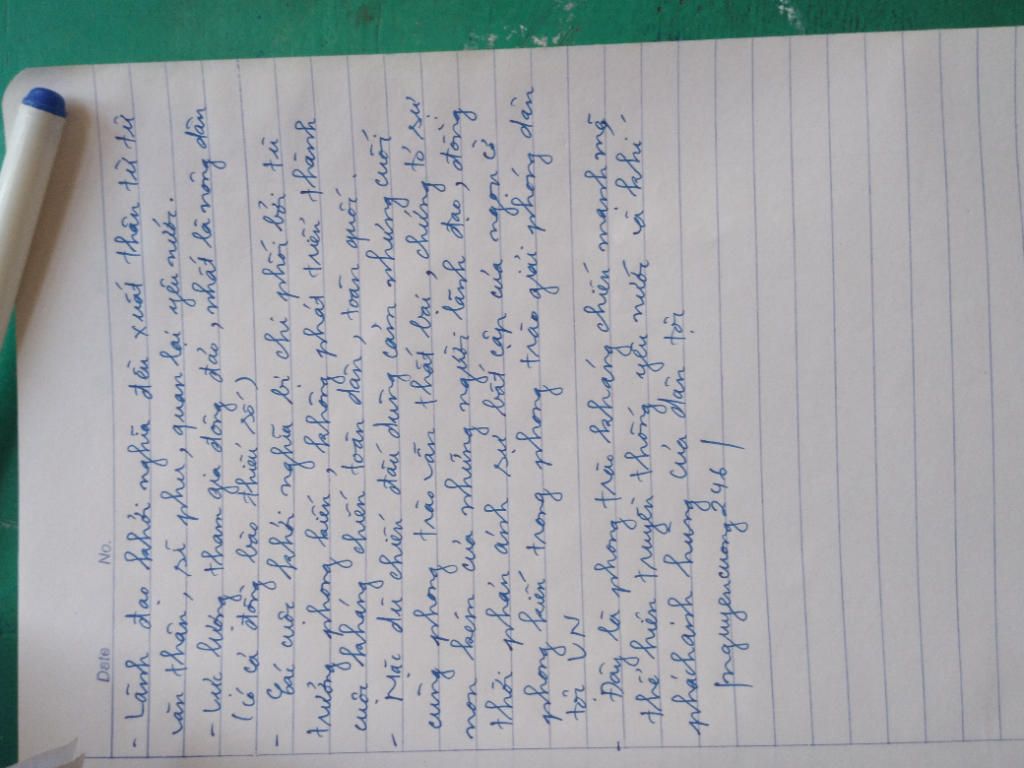 Date No.
- Lãnh đạo khởi nghĩa đều xuất thân từ từ
văn thân, sĩ phu, quan lại yêu nước.
- Lực lượng tham gia đông đảo, nhất là nông dân
(có cả đồng bào thiểu số)
- Các cuộc khởi nghĩa bị chi phối bởi tư
tưởng phong kiến, không phát triển thành
cuộc kháng chiến toàn dân, toàn quốc.
- Mặc dù chiến đấu dũng cảm nhưng cuối
cùng phong trào vẫn thất bại, chứng tỏ sự
non kém của những người lãnh đạo, đồng
thời phản ánh sự bất cập của ngọn cờ
phong kiến trong phong trào giải phóng dân
tộc VN
- Đây là phong trào kháng chiến mạnh mẽ
thể hiện truyền thống yêu nước và khí
phách anh hùng của dân tộc
pnguyencuong246